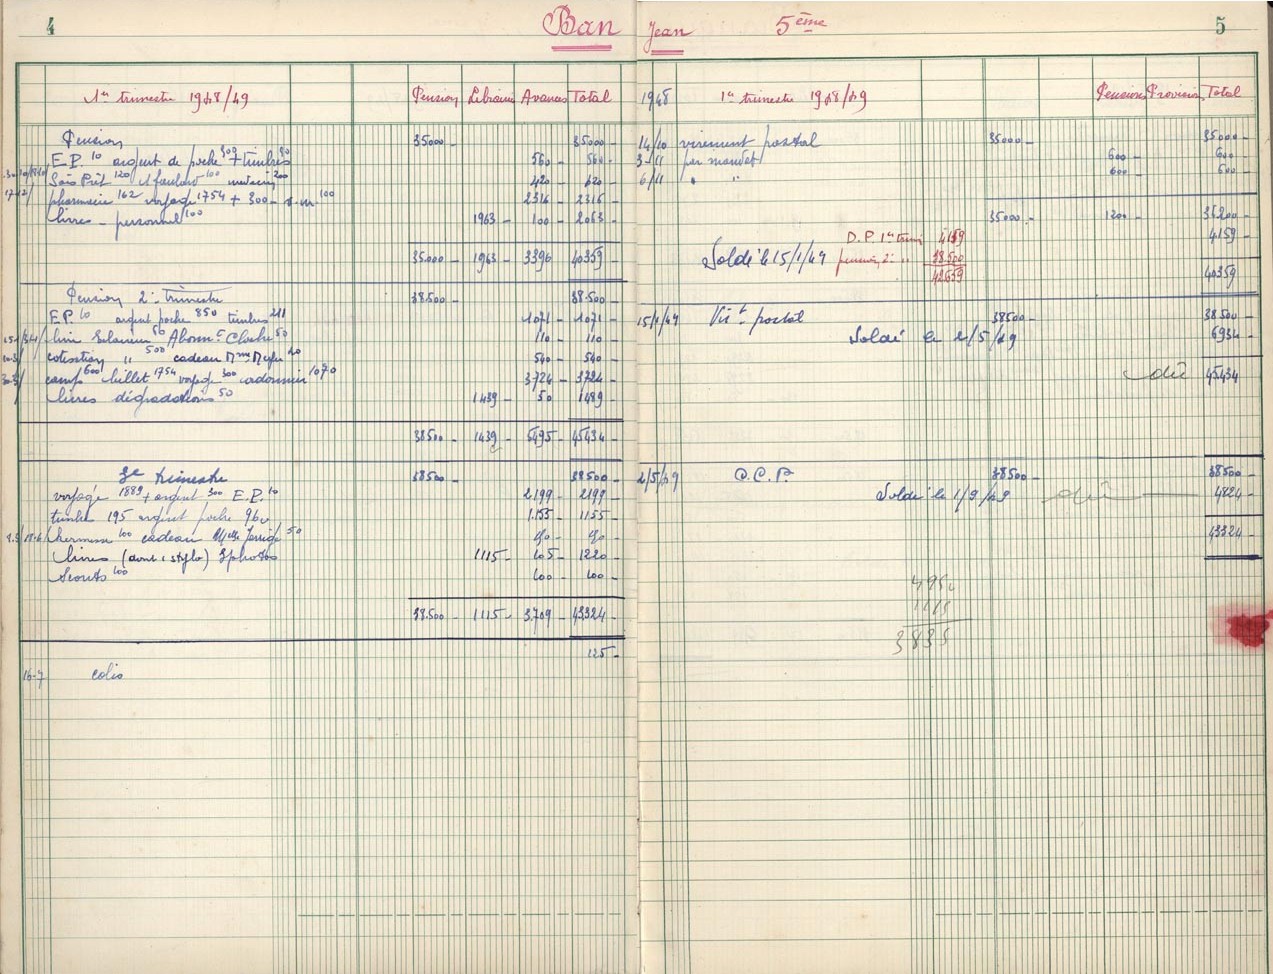 4 Ban
1er trimestre 1948/49 Pension Librairie Avances Total
Pension 35000 - 35000 -
E.P. 10 argent de poche 309 + timbres 560 - 560 -
120 100 200 420 -
17-12/ pharmacie 162 voyage 1754 + 300 - 100 2316 - 2316 -
livres - personnel 100 1963 - 100 - 2063 -
35000 - 1963 - 3396 40359 -
Pension 2e trimestre 38.500 - 38.500 -
E.P. 10 argent poche 850 timbres 211 1071 - 1071 -
50 110 - 110 -
cotisation " 500 cadeau Mme 540 - 540 -
camp 600 billet 1754 voyage 300 1070 3724 - 3724 -
livres dégradations 50 1439 - 50 - 1489 -
38500 - 1439 - 5495 - 45434 -
3e trimestre 38500 - 38500 -
voyage 1889 + argent 300 E.P. 10 2199 - 2199 -
timbres 195 argent poche 960 1.155 - 1155 -
100 cadeau Melle 50
livres (dont 1 stylo) 3 photos 1115 - 105 - 1220 -
Scouts 100 100 - 100 -
38.500 - 1115 - 3.709 - 43324 -
125 -
16-7 colis
Jean 5ème 5
1948 1er trimestre 1948/49 Pension Provision Total
14/10 virement postal 35000 - 35000 -
3-11 par mandat 600 - 600 -
6/11 " " 600 - 600 -
35000 - 1200 - 36200 -
D.P. 1er trim 4159 4159 -
Soldé le 15/1/49 pension 2e " 38.500
42659 40359 -
15/1/49 Virt postal 38500 - 38.500 -
Soldé le 2/5/49 6934 -
dû 45434 -
2/5/49 C.C.P. 38500 - 38500 -
Soldé le 1/9/49 dû 4824 -
43324 -
495
1115
3835